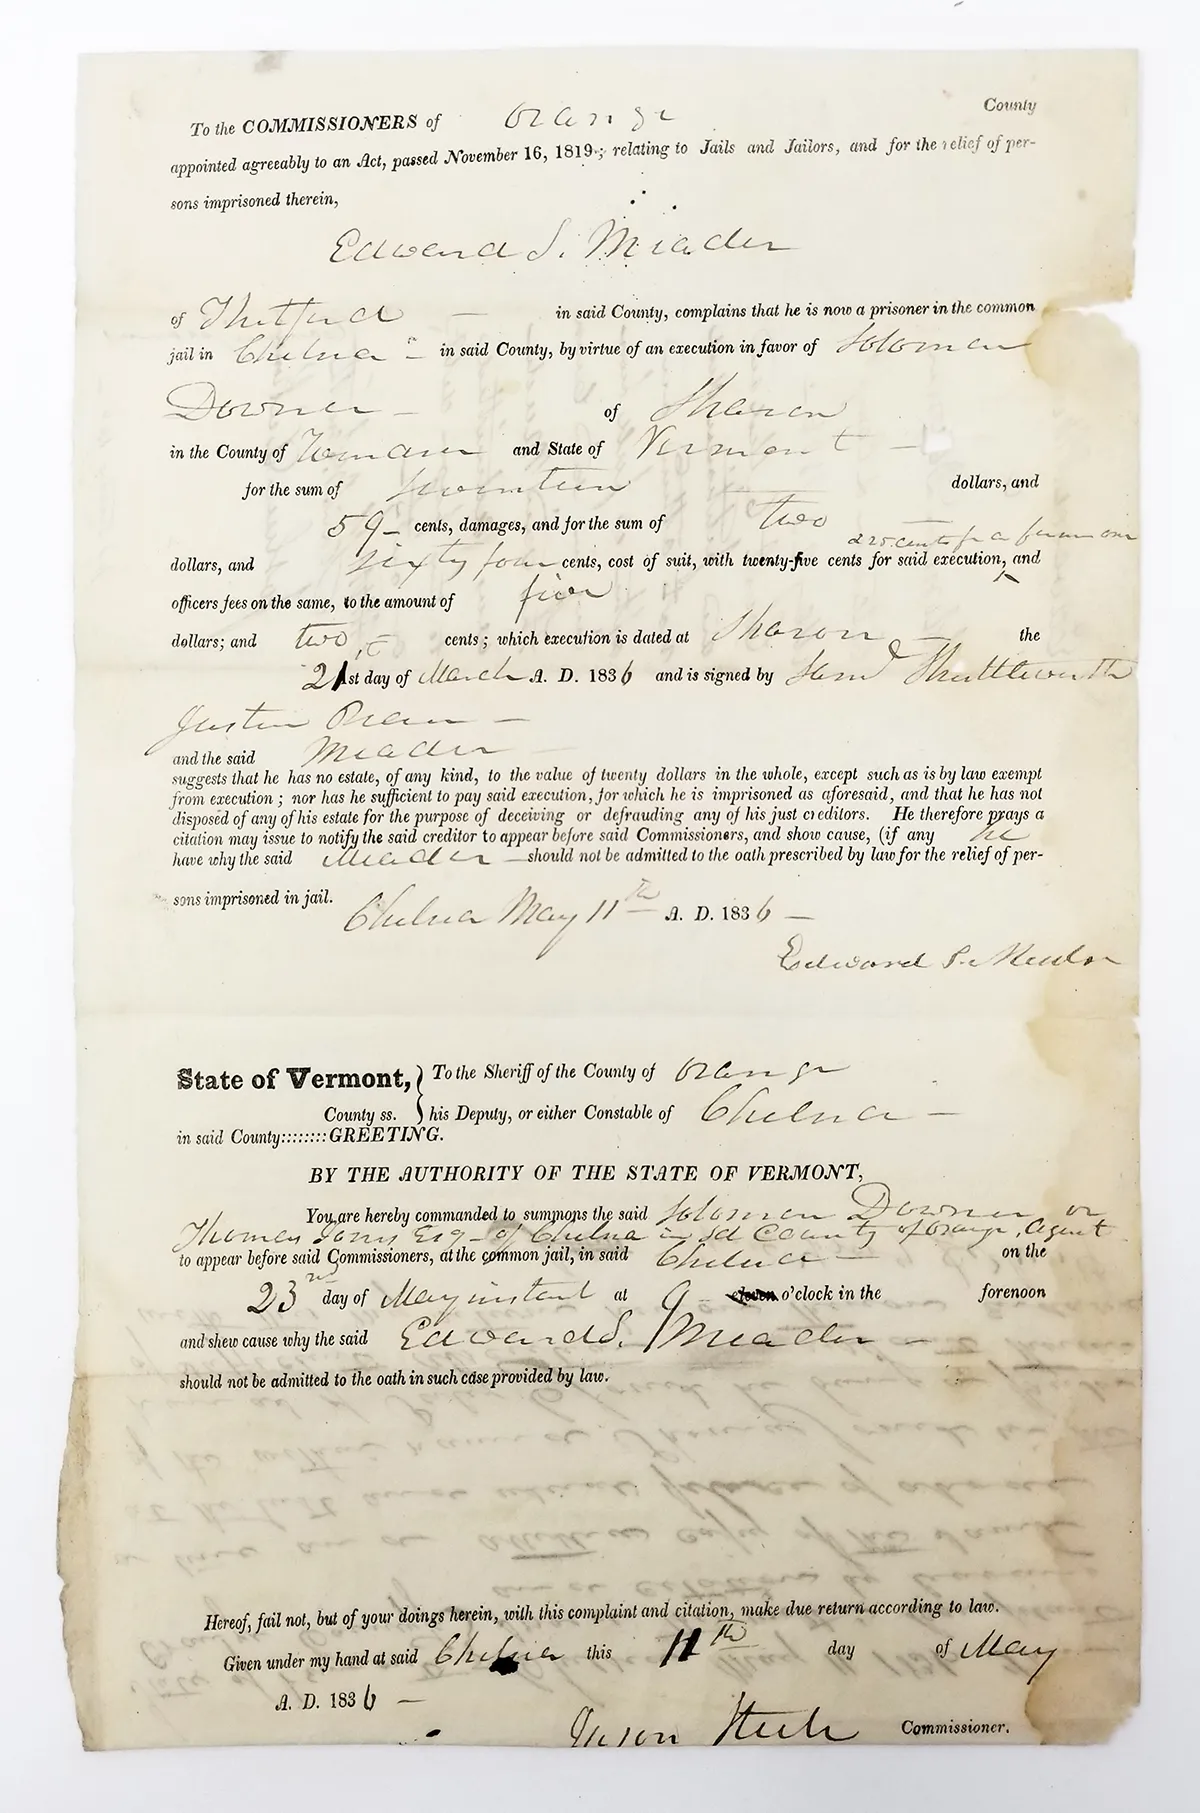 To the COMMISSIONERS of Orange County
appointed agreeably to an Act, passed November 16, 1819; relating to Jails and Jailors, and for the relief of per-
sons imprisoned therein,
Edward S. Meader
of Thetford — in said County, complains that he is now a prisoner in the common
jail in Chelsea — in said County, by virtue of an execution in favor of Solomon
Downer — of Sharon
in the County of and State of Vermont —
for the sum of seventeen dollars, and
59 – cents, damages, and for the sum of two
25 cents for a former one
dollars, and sixty four cents, cost of suit, with twenty-five cents for said execution, ^ and
officers fees on the same, to the amount of five
dollars; and two, – cents; which execution is dated at Sharon — the
21st day of March A. D. 1836 and is signed by Shuttleworth
Justice Peace —
and the said Meader —
suggests that he has no estate, of any kind, to the value of twenty dollars in the whole, except such as is by law exempt
from execution; nor has he sufficient to pay said execution, for which he is imprisoned as aforesaid, and that he has not
disposed of any of his estate for the purpose of deceiving or defrauding any of his just creditors. He therefore prays a
citation may issue to notify the said creditor to appear before said Commissioners, and show cause, (if any he
have why the said Meader — should not be admitted to the oath prescribed by law for the relief of per-
sons imprisoned in jail.
Chelsea May 11th A. D. 1836 —
Edward S. Meader
State of Vermont, } To the Sheriff of the County of Orange
County ss. } his Deputy, or either Constable of Chelsea —
in said County::::::::GREETING.
BY THE AUTHORITY OF THE STATE OF VERMONT,
You are hereby commanded to summons the said Solomon Downer or
Thomas Jones Esq – of Chelsea in sd County of Orange, Agent
to appear before said Commissioners, at the common jail, in said Chelsea — on the
23rd day of May instant at 9 – eleven o'clock in the forenoon
and shew cause why the said Edward S. Meader —
should not be admitted to the oath in such case provided by law.
Hereof, fail not, but of your doings herein, with this complaint and citation, make due return according to law.
Given under my hand at said Chelsea this 11th day of May
A. D. 1836 —
Jason Steele Commissioner.